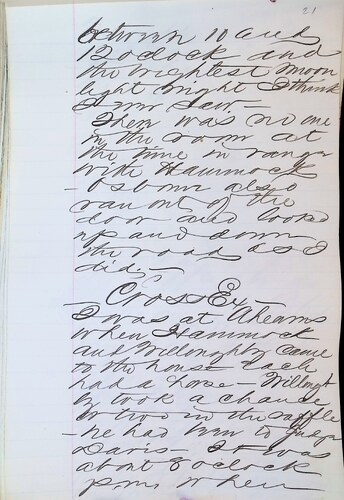 21
between 10 and
12 oclock and
the brightest moon
light night I think
I ever saw.—
There was no one
in the room at
the time in range
with Hammock
— Osborn also
ran out of the
door and looked
up and down
the road as I
did.—
Cross Ex—
I was at Ahearns
when Hammock
and Willoughby came
to the house each
had a horse — Willough
by took a chance
or two in the raffle
— he had been to
Davis — It was
about 8 oclock
p.m. when